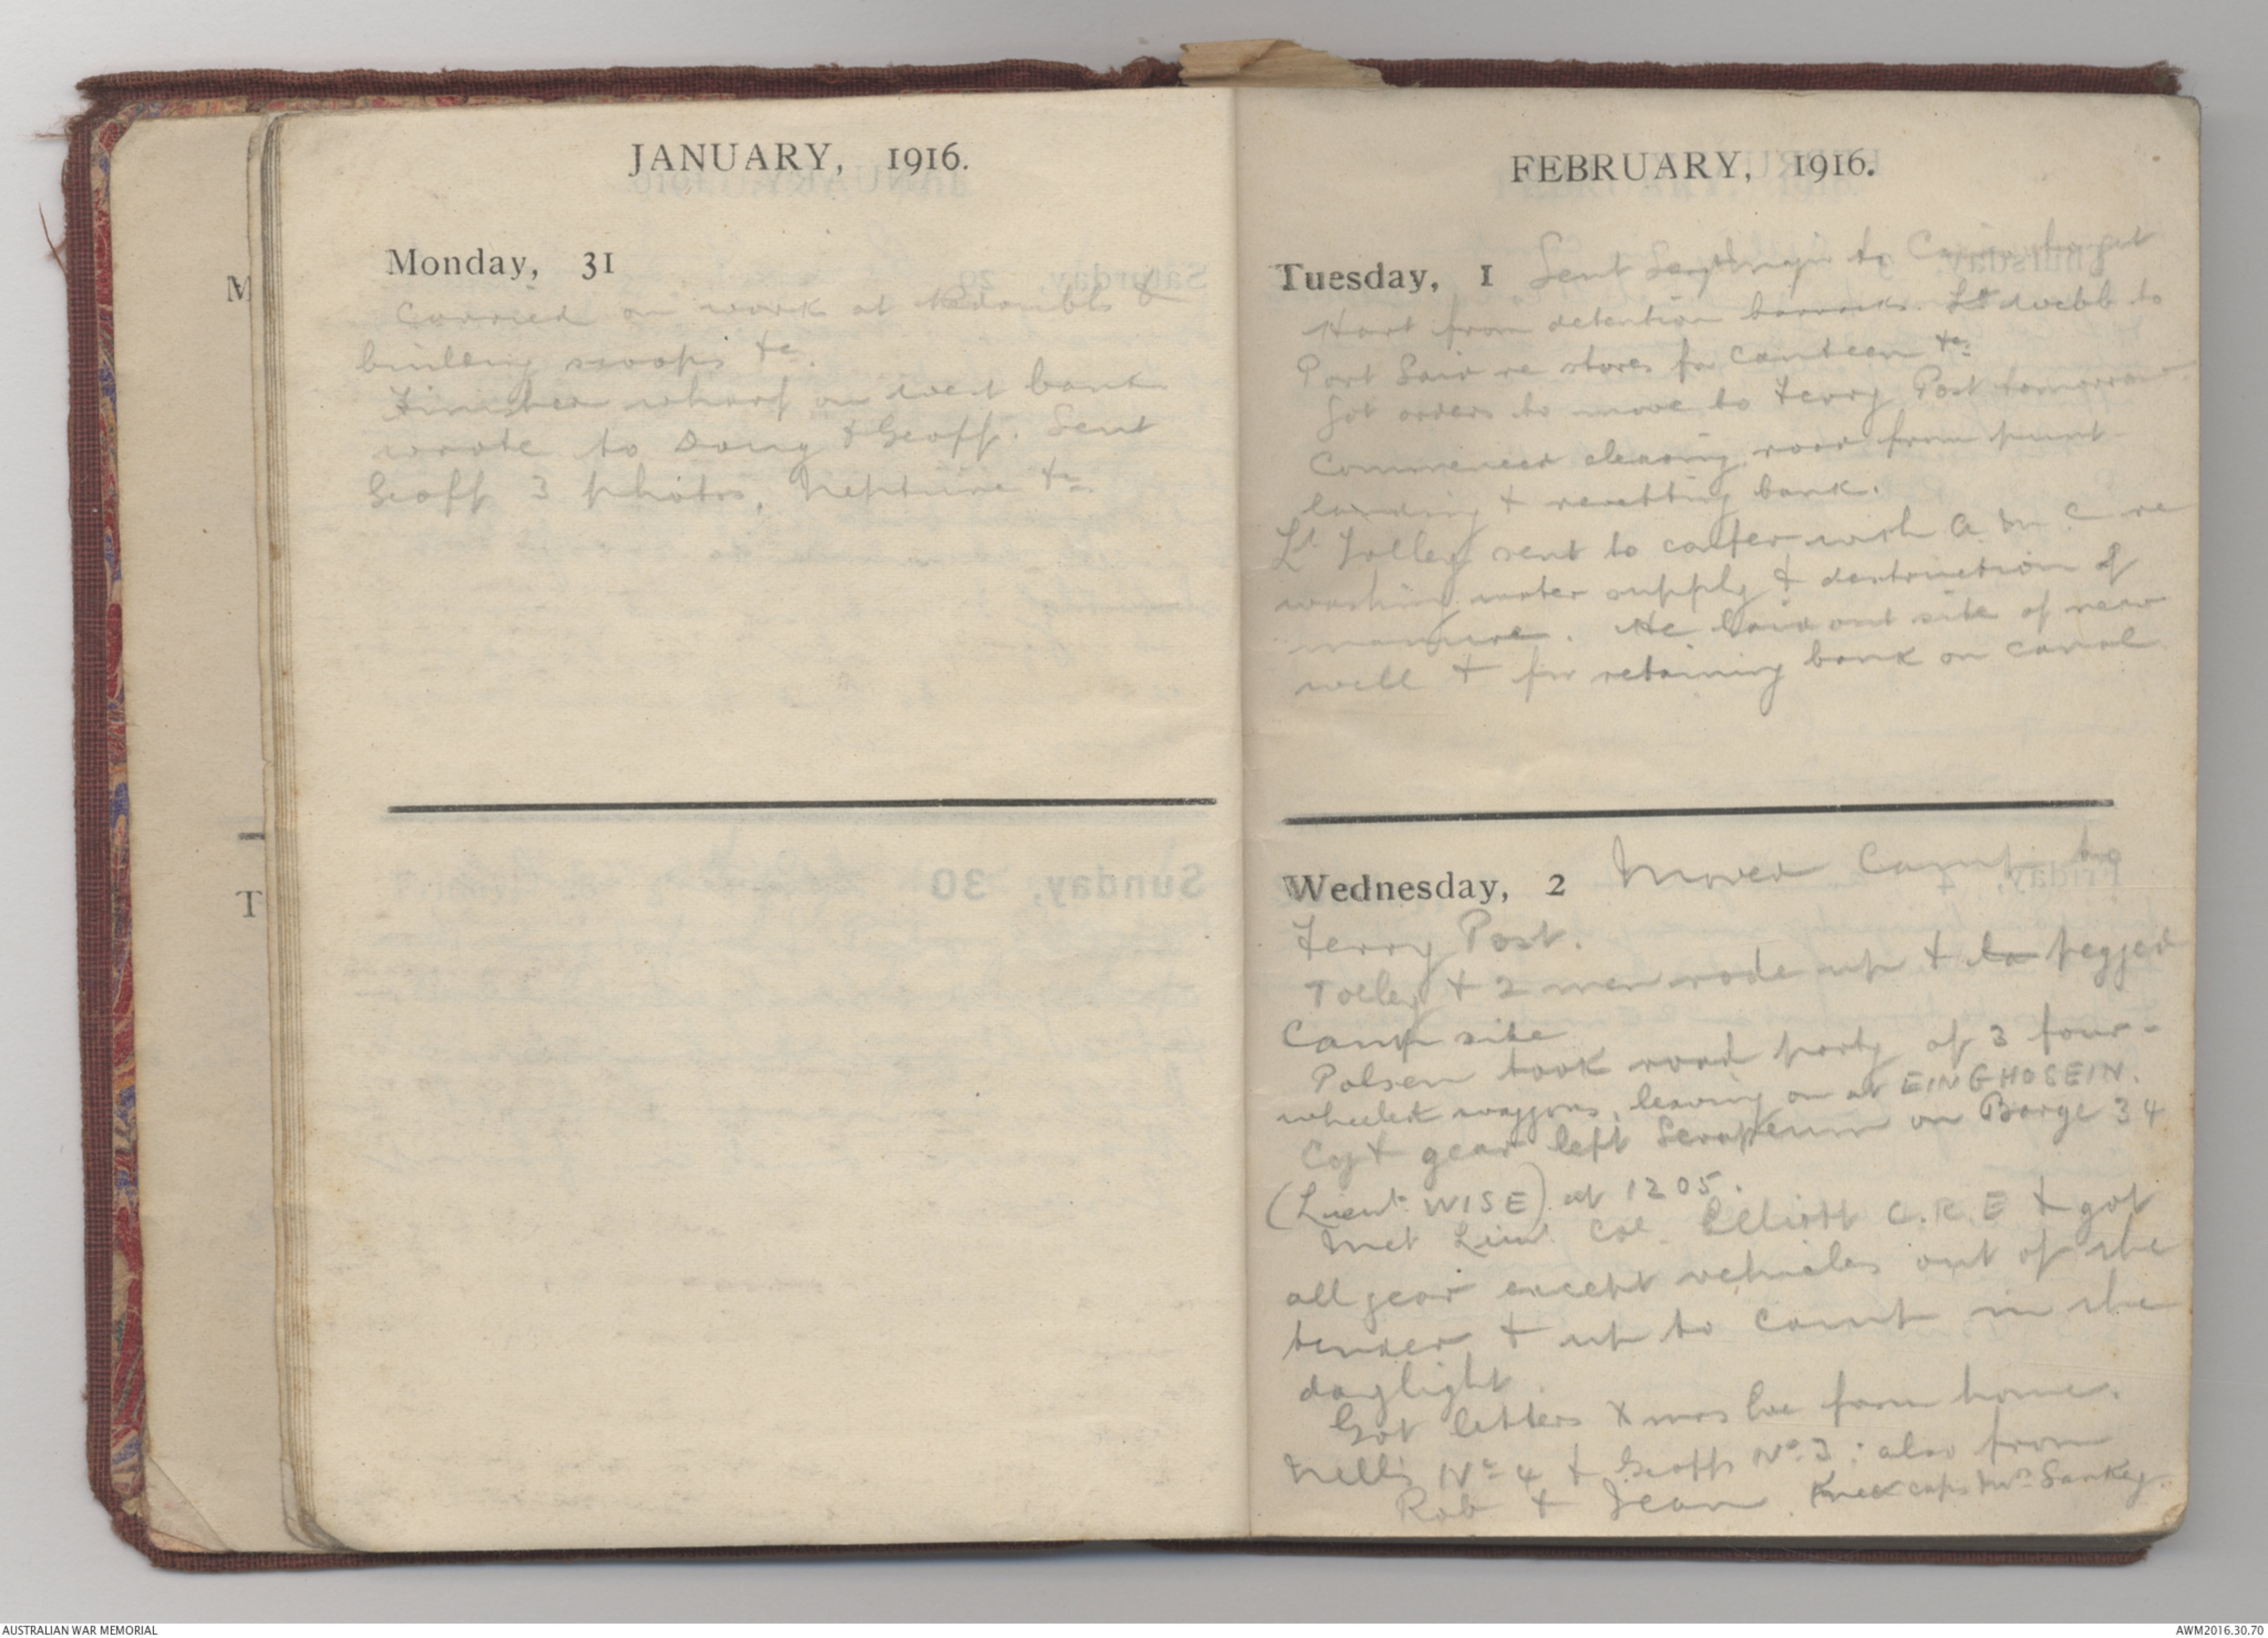 JANUARY, 1916.
Monday, 31
Carried on work at Redoubts &
building &c.
Timber wharf on west bank
wrote to Doug & Geoff. Sent
Geoff 3 photos, Neptune &c.
FEBRUARY, 1916.
Tuesday, 1 Sent to Cairo to get
Hart from detention barracks. Lt Webb to
Port Said re stores for Canteen &c.
Got orders to move to Ferry Post tomorrow
Commenced clearing road from punt
landing & revetting bank.
Lt Tolley sent to confer with A.M.C re
washing water supply & destruction of
manure. He laid out site of new
well & for retaining bank on canal
Wednesday, 2 Moved Camp to
Ferry Post.
Tolley & 2 men rode up & pegged
Camp site
Polsen took road party of 3 four-
wheeled waggons, leaving on at EINGHOSEIN.
Coy & gear left Serapeum on Barge 34
(Lieut. WISE) at 1205.
Met Lieut. Col. Elliott C.R.E & got
all gear except vehicles out of the
tender & up to camp in the
daylight.
Got letters Xmas from home.
Nell's No 4 & Geoff No 3; also from
Rob & Jean. Knee caps Mrs Sankey.
M
T
AUSTRALIAN WAR MEMORIAL
AWM2016.30.70